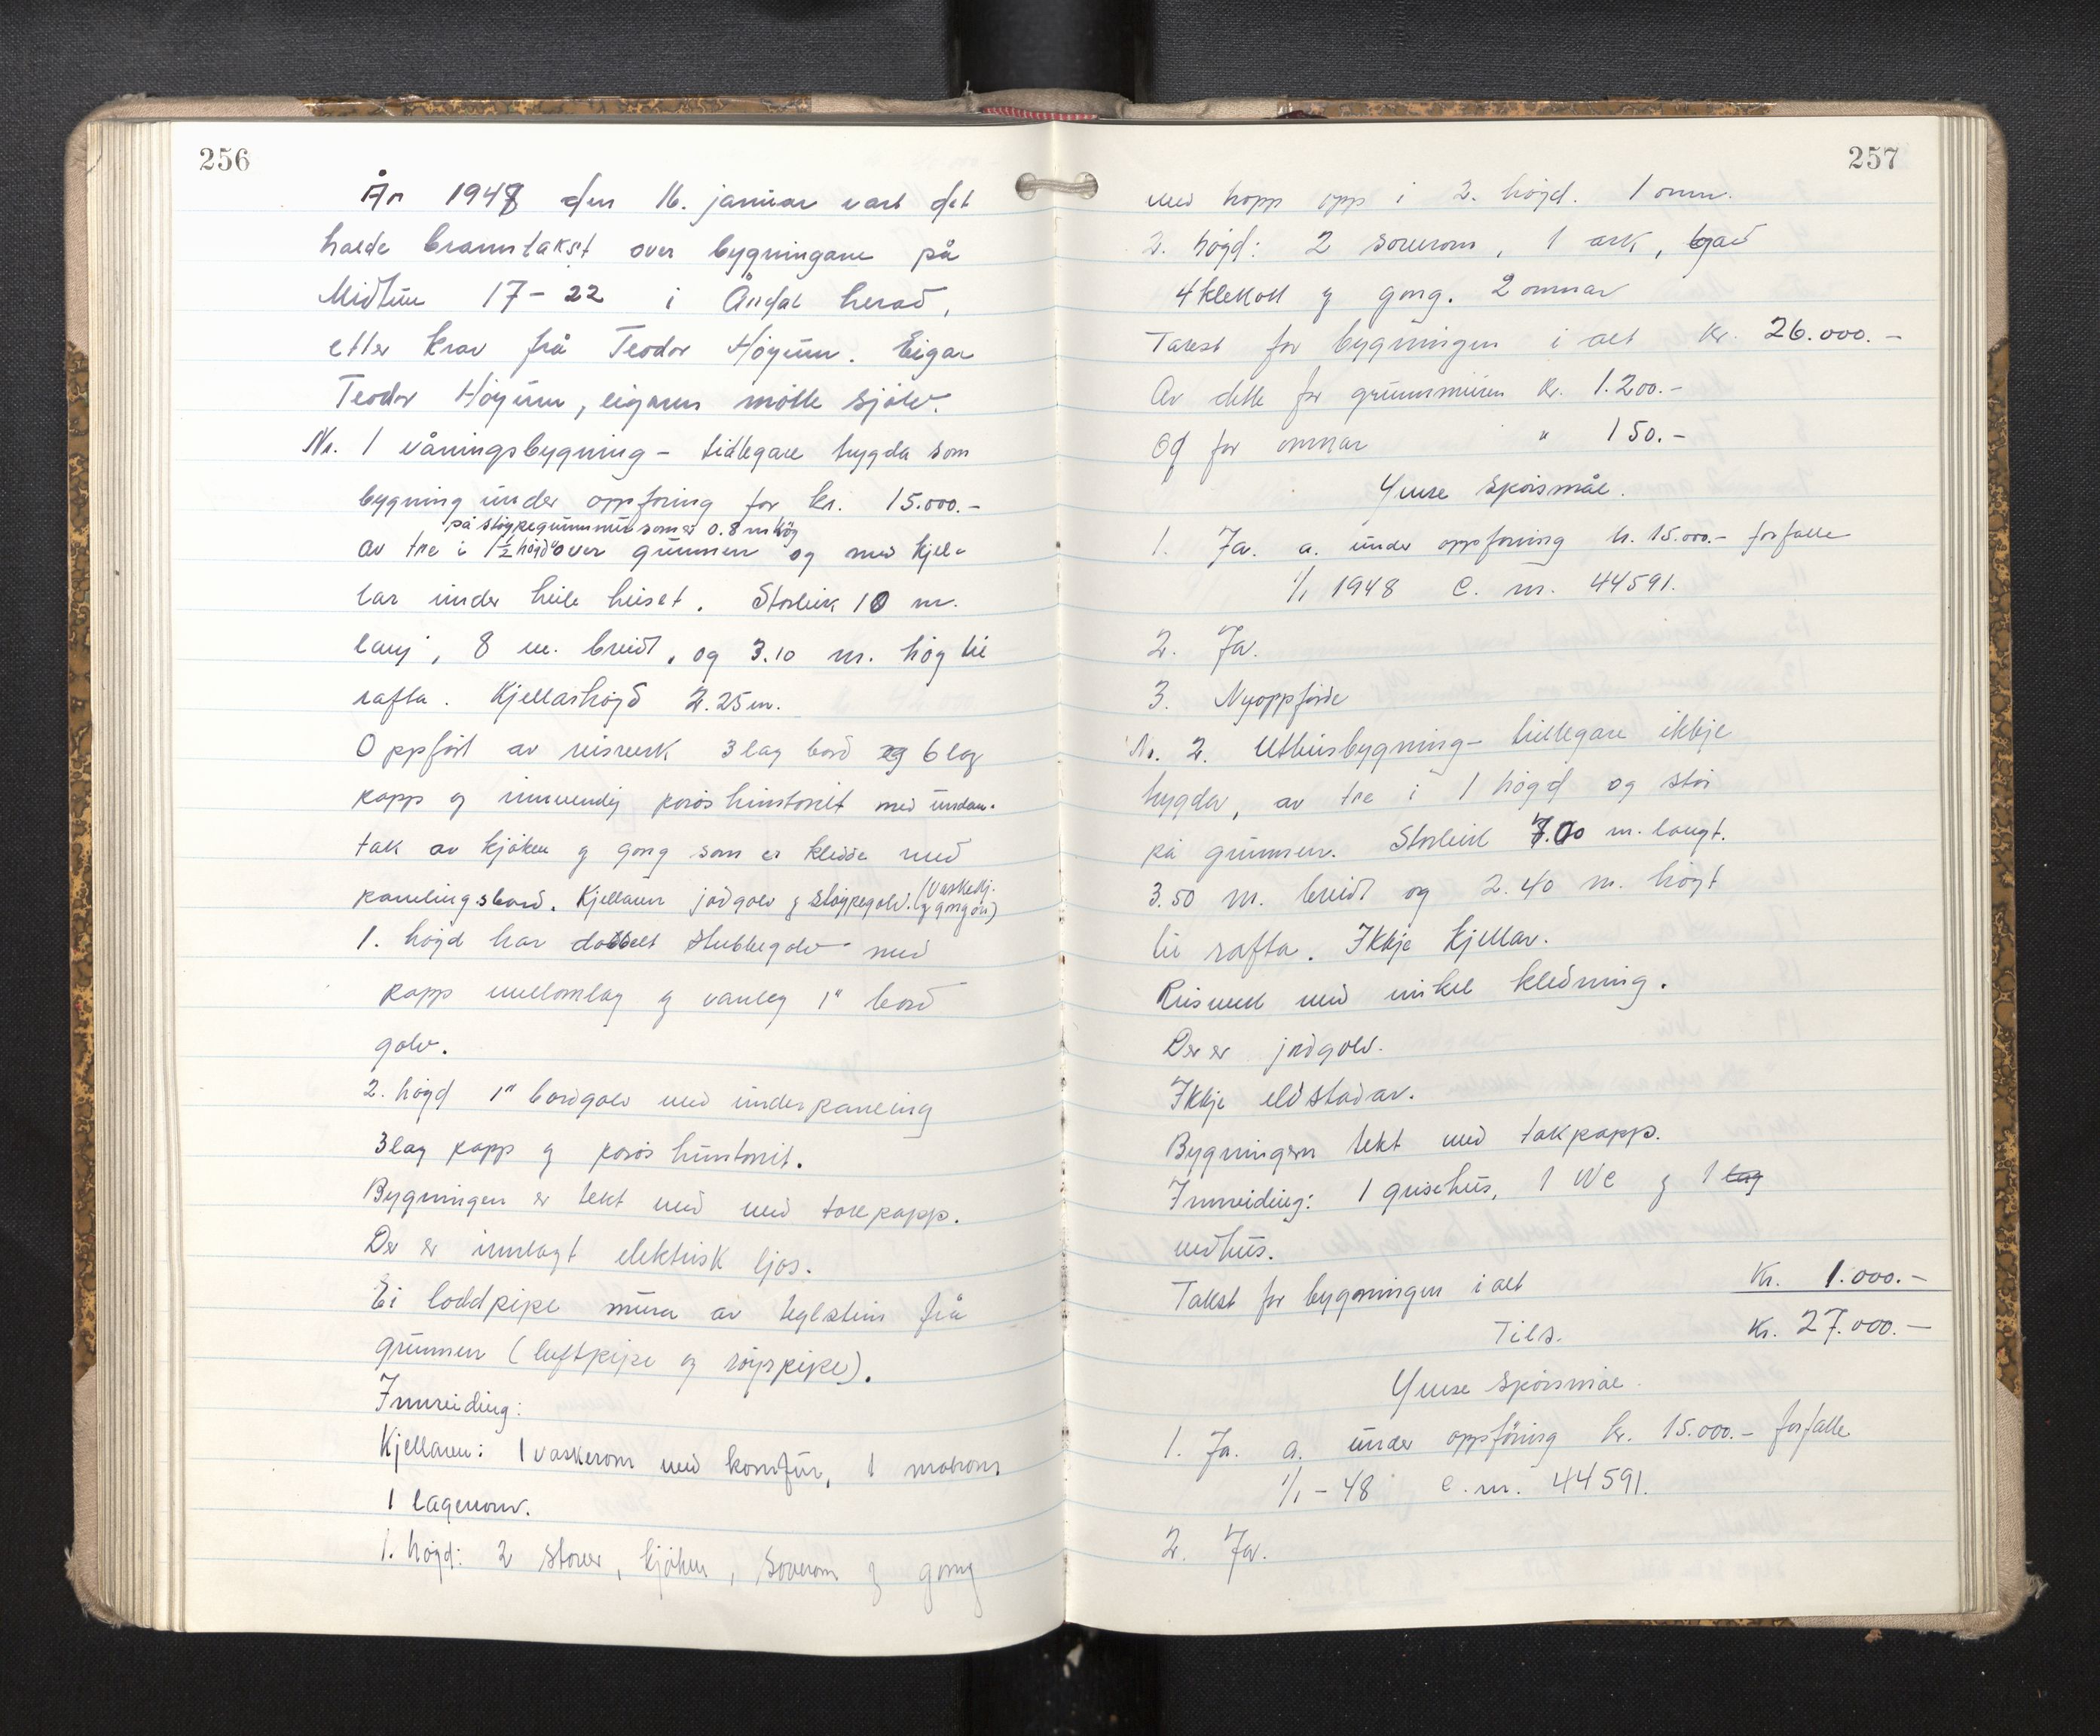 256
År 1948 den 16. januar vart det
halde branntakst over bygningane på
Midtun 17-22 i Årdal herad,
etter krav frå Teodor Høyum. Eigar
Teodor Høyum, eigaren møtte sjølv.
Nr. 1 våningsbygning - tidlegare trygda som
bygning under oppføring for kr. 15.000.-
på støypegrunnmur som er 0.8 m høg
av tre i 1½ høgd over grunnen og med kjel-
lar under heile huset. Storleik 10 m.
lang, 8 m. breidt, og 3.10 m. høg til
rafta. Kjellarhøgd 2.25 m.
Oppført av reisverk 3 lag bord og 6 lag
papp og innvendig porøs huntonit med undan-
tak av kjøken og gong som er kledde med
panelingsbord. Kjellaren jordgolv og støypegolv. (Vaskekj.
og gongen)
1. høgd har dobbelt stubbegolv med
papp mellomlag og vanleg 1" bord
golv.
2. høgd 1" bordgolv med underpaneling
3 lag papp og porøs huntonit.
Bygningen er tekt med med takpapp.
Der er innlagt elektrisk ljos.
Ei loddpipe mura av teglstein frå
grunnen (luftpipe og røykpipe).
Innreiding:
Kjellaren: 1 vaskerom med komfur, 1 matrom
1 lagerrom.
1. høgd: 2 stover, kjøken, soverom og gong
257
med tropp opp i 2. høgd. 1 omn.
2. høgd: 2 soverom, 1 ark, bad
4 klekott og gong. 2 omnar
Takst for bygningen i alt kr. 26.000.-
Av dette for grunnmuren kr. 1.200.-
Og for omnar " 150.-
Ymse spørsmål.
1. Ja. a. under oppføring kr. 15.000.- forfalle
1/1 1948 C. nr. 44591.
2. Ja.
3. Nyoppførde
Nr. 2. Uthusbygning - tidlegare ikkje
trygda, av tre i 1 høgd og står
på grunnen. Storleik 7.00 m. langt.
3.50 m. breidt og 2.40 m. høgt
til rafta. Ikkje kjellar.
Reisverk med enkel kledning.
Der er jordgolv.
Ikkje eldstadar.
Bygningen tekt med takpapp.
Innreiding: 1 grisehus, 1 WC og 1 lag
vedhus.
Takst for bygningen i alt Kr. 1.000.-
Tils. Kr. 27.000.-
Ymse spørsmål.
1. Ja. a. under oppføring kr. 15.000.- forfalle
1/1 - 48 C. nr. 44591.
2. Ja.